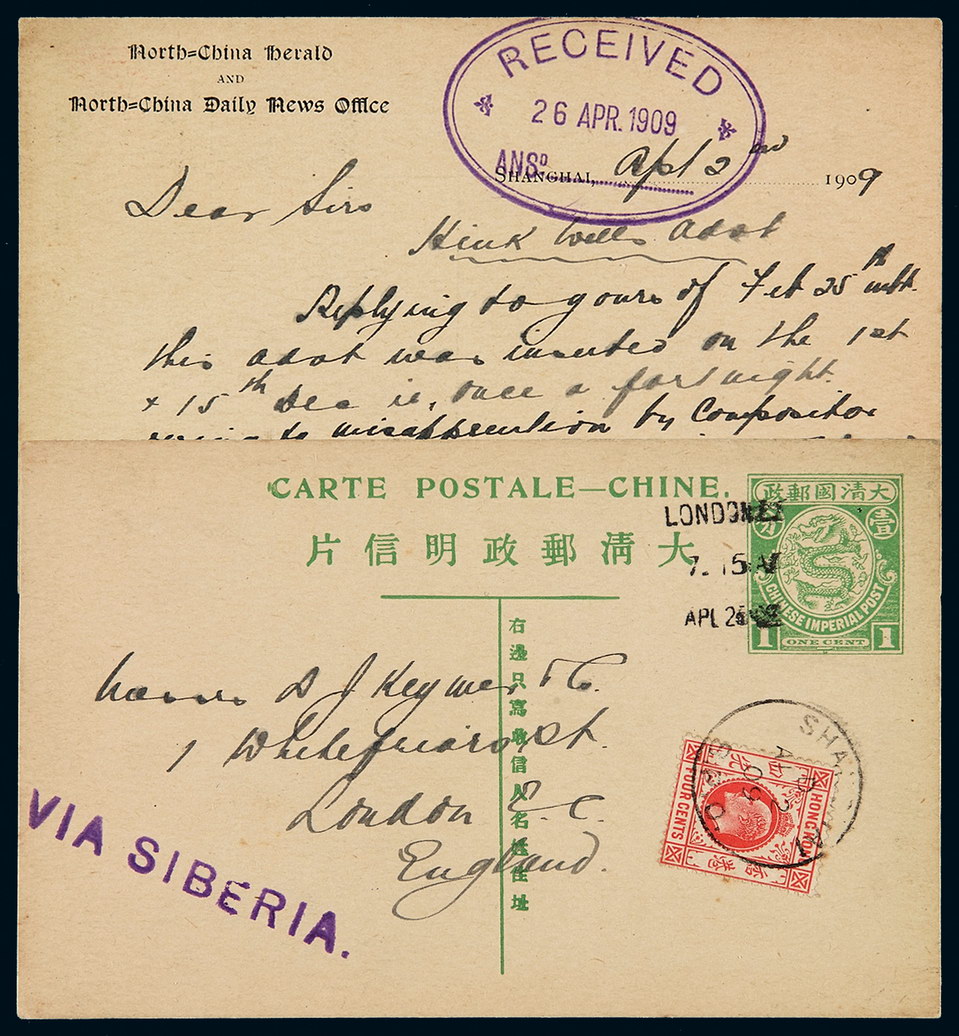 North=China Herald
AND
North=China Daily News Office
RECEIVED
26 APR. 1909
ANSD
SHANGHAI, Apl 2nd 1909
Dear Sirs
Hink Wells Advt
Replying to yours of Feb 25th
this advt was inserted on the 1st
+ 15th Dec ie, once a fortnight.
owing to misapprention by Compositor
CARTE POSTALE—CHINE.
大清郵政明信片
大清國郵政
壹
分
CHINESE IMPERIAL POST
1 ONE CENT 1
LONDON
7. 15 A
APL 25
右邊只寫收信人名姓住址
Messrs D J Keymer & Co.
1 Whitefriars St.
London E. C.
England.
VIA SIBERIA.
HONG KONG
FOUR CENTS
香港
SHA
AP 2
09